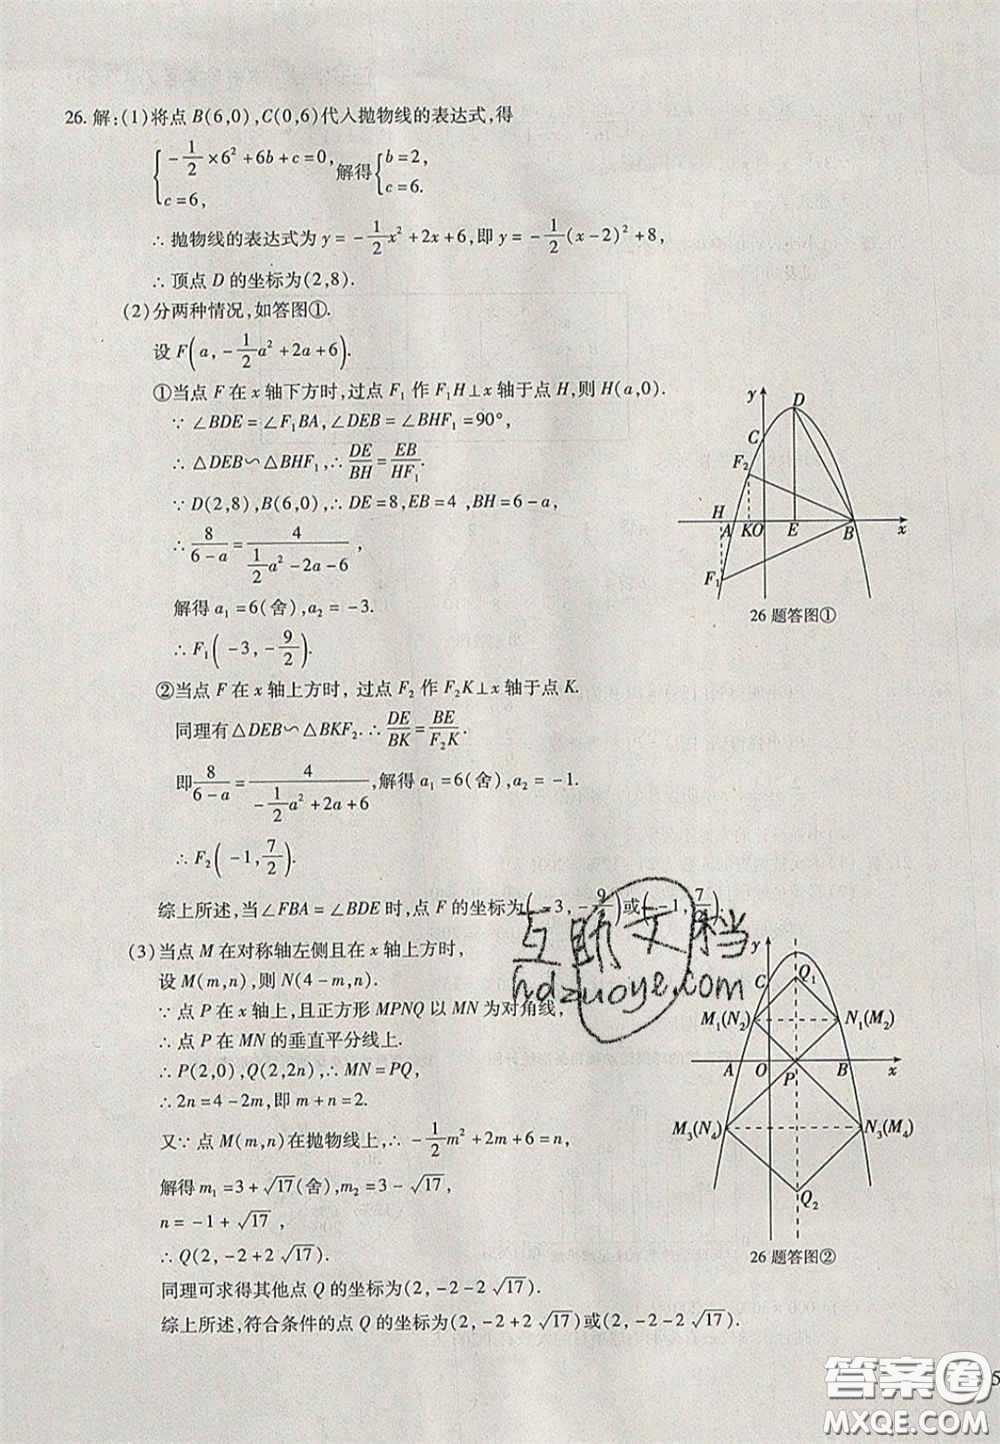 26. 解:(1)将点 B(6,0),C(0,6)代入抛物线的表达式,得
{-1/2×6²+6b+c=0, c=6, 解得{b=2, c=6.
∴ 抛物线的表达式为 y=-1/2x²+2x+6,即 y=-1/2(x-2)²+8,
∴ 顶点 D 的坐标为(2,8).
(2)分两种情况,如答图①.
设 F(a,-1/2a²+2a+6).
①当点 F 在 x 轴下方时,过点 F₁ 作 F₁H⊥x 轴于点 H,则 H(a,0).
∵ ∠BDE=∠F₁BA,∠DEB=∠BHF₁=90°,
∴ △DEB∽△BHF₁,∴ DE/BH=EB/HF₁.
∵ D(2,8),B(6,0),∴ DE=8,EB=4,BH=6-a,
∴ 8/(6-a)=4/(1/2a²-2a-6),
解得 a₁=6(舍),a₂=-3.
∴ F₁(-3,-9/2).
②当点 F 在 x 轴上方时,过点 F₂ 作 F₂K⊥x 轴于点 K.
同理有△DEB∽△BKF₂.∴ DE/BK=BE/F₂K.
即 8/(6-a)=4/(-1/2a²+2a+6),解得 a₁=6(舍),a₂=-1.
∴ F₂(-1,7/2).
综上所述,当∠FBA=∠BDE 时,点 F 的坐标为(-3,-9/2)或(-1,7/2).
(3)当点 M 在对称轴左侧且在 x 轴上方时,
设 M(m,n),则 N(4-m,n).
∵ 点 P 在 x 轴上,且正方形 MPNQ 以 MN 为对角线,
∴ 点 P 在 MN 的垂直平分线上.
∴ P(2,0),Q(2,2n),∴ MN=PQ,
∴ 2n=4-2m,即 m+n=2.
又∵ 点 M(m,n)在抛物线上,∴ -1/2m²+2m+6=n,
解得 m₁=3+√17(舍),m₂=3-√17,
n=-1+√17,
∴ Q(2,-2+2√17).
同理可求得其他点 Q 的坐标为(2,-2-2√17).
综上所述,符合条件的点 Q 的坐标为(2,-2+2√17)或(2,-2-2√17).
y
D
C
F₂
H
A
K
O
E
B
x
F₁
26 题答图①
y
C
Q₁
M₁(N₂)
N₁(M₂)
A
O
P
B
x
M₃(N₄)
N₃(M₄)
Q₂
26 题答图②
互助文档
hdzuoye.com
答案圈
MXQE.COM
5